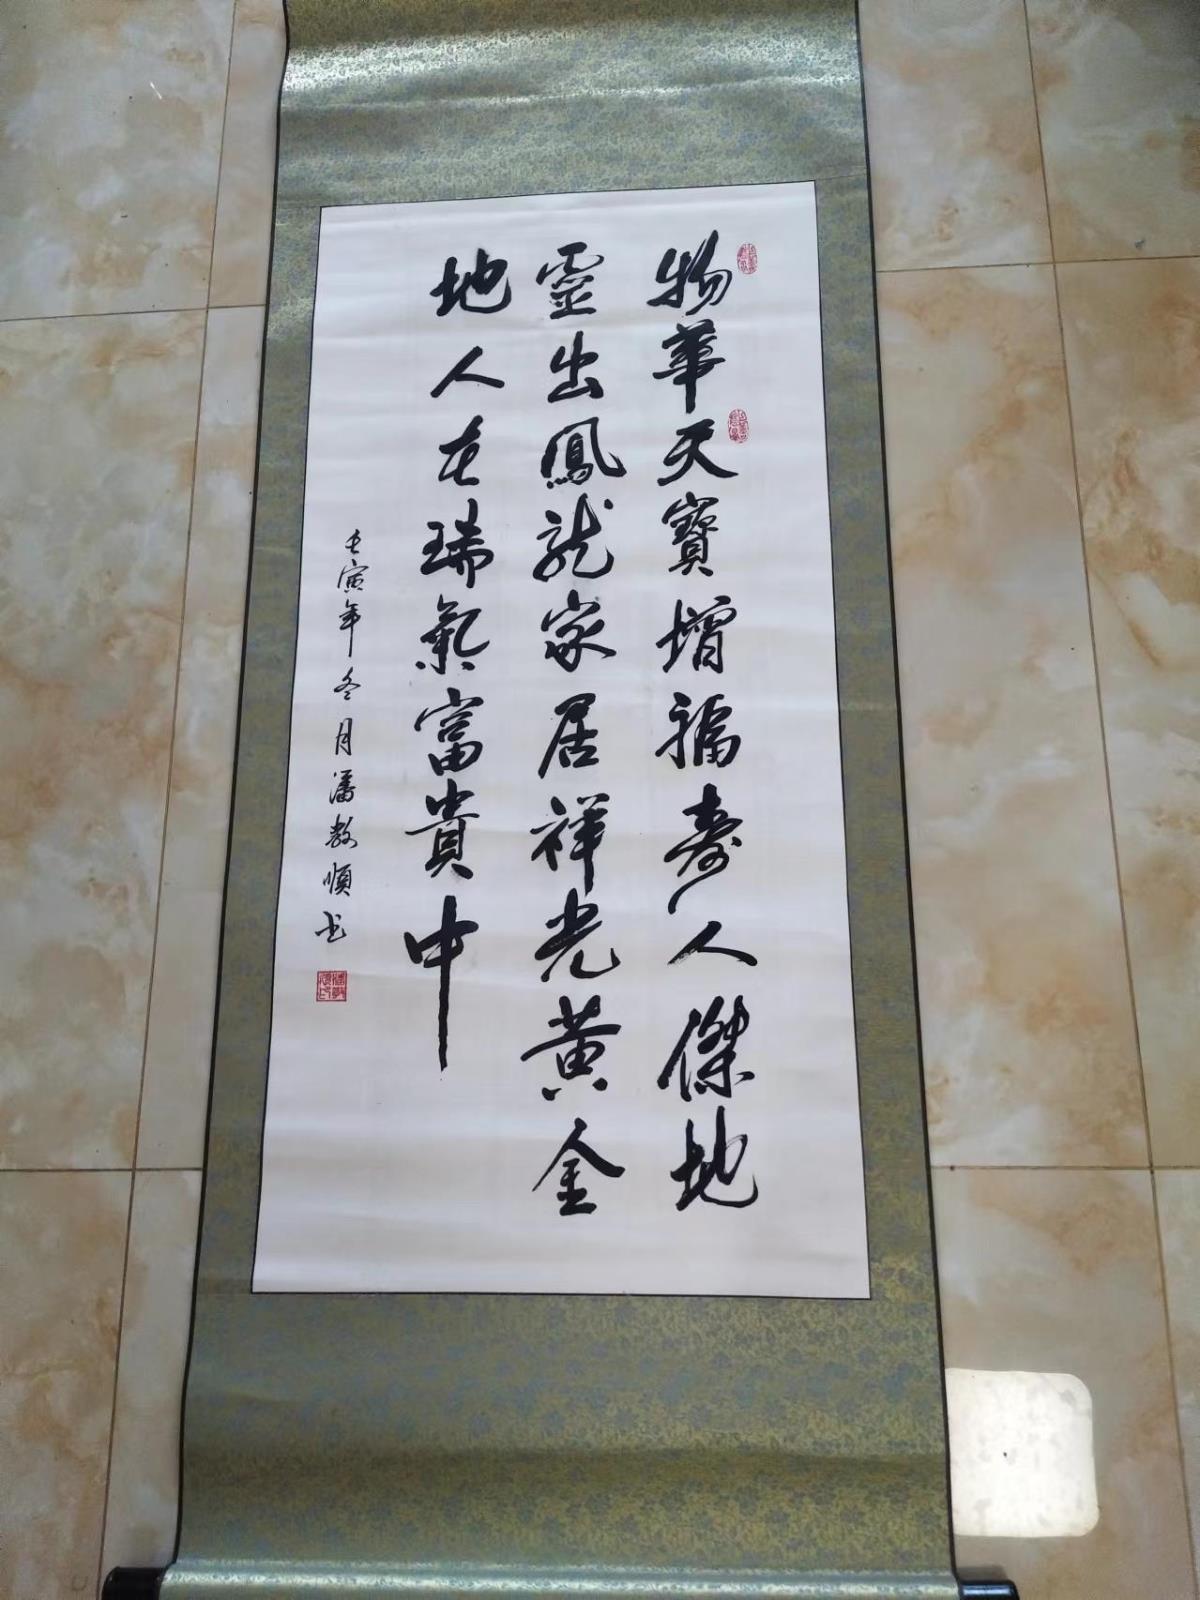 物華天寶增福壽人傑地
靈出鳳龍家居祥光黃金
地人在瑞氣富貴中
壬寅年冬月潘敖順书